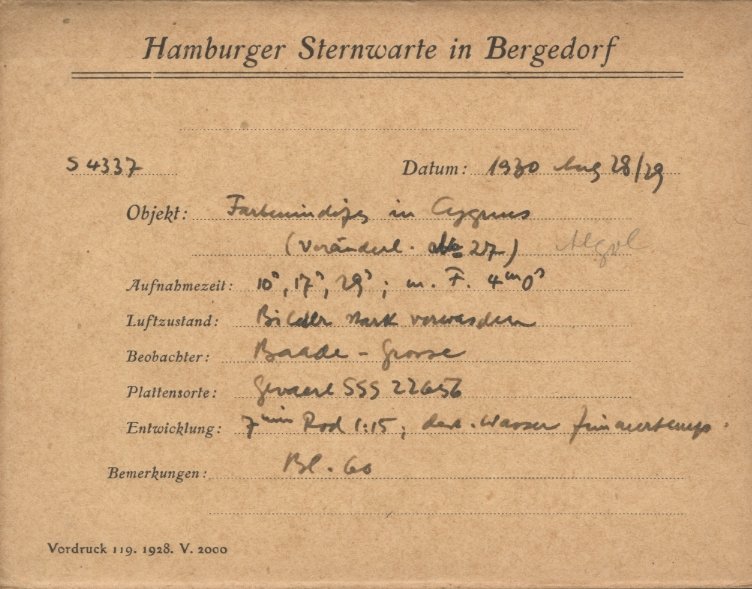 Hamburger Sternwarte in Bergedorf
S 4337
Datum: 1930 Aug 28/29
Objekt: Farbenindizes in Cygnus
(Veränderl. 27) Algol
Aufnahmezeit: 10ˢ, 17ˢ, 29ˢ; m. F. 4ᵐ0ˢ
Luftzustand: Bilder stark verwaschen
Beobachter: Baade - Grosse
Plattensorte: Gevaert SSS 22656
Entwicklung: 7ᵐⁱⁿ Rod 1:15; dest. Wasser
Bemerkungen: Bl. 60
Vordruck 119. 1928. V. 2000